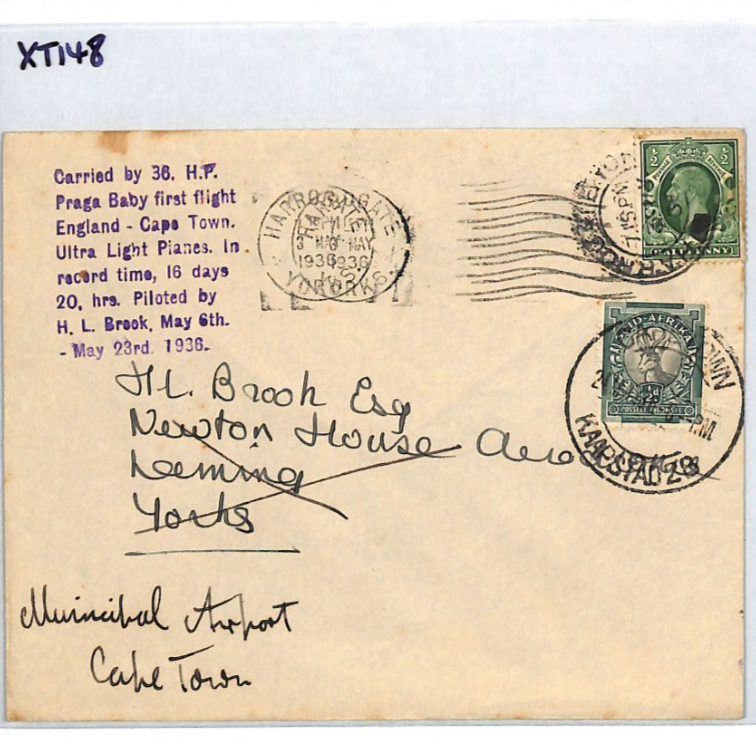 XT148
Carried by 36. H.P.
Praga Baby first flight
England - Cape Town.
Ultra Light Planes. In
record time, 16 days
20, hrs. Piloted by
H. L. Brook, May 6th.
- May 23rd. 1936.
HARROGATE
MAY
1936
YORKS.
½ ½
HALFPENNY
SUID-AFRIKA
½d
POSSEEL INKOMSTE
KAAPSTAD 28
H.L. Brook Esq
Newton House
Leeming
Yorks
Municipal Airport
Cape Town